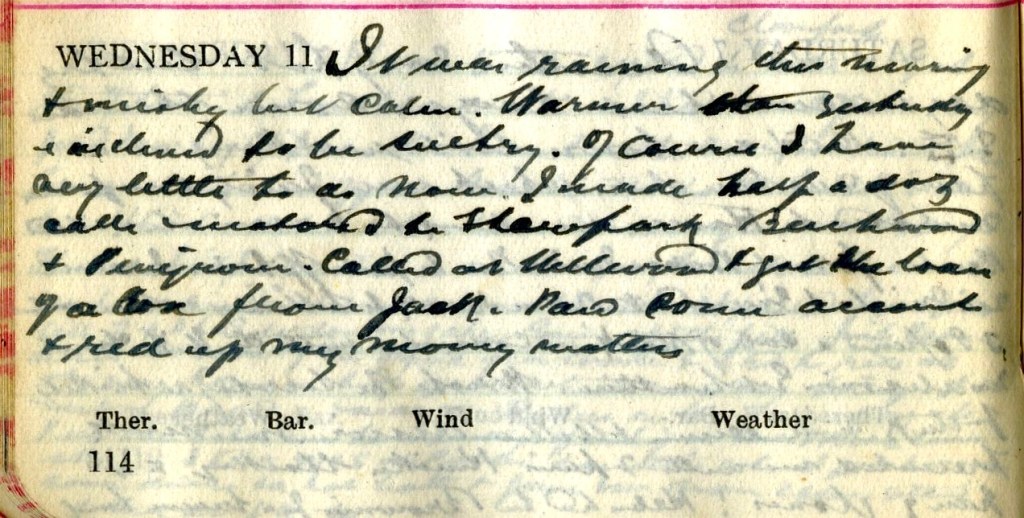 WEDNESDAY 11 It was raining this morning
& misty but calm. Warmer than yesterday
& inclined to be sultry. Of course I have
very little to do now. I made half a doz
calls motored to Beechwood
& Called at Hillwood & got the loan
of a box from Jack. Paid some accounts
& red up my money matters
Ther. Bar. Wind Weather
114